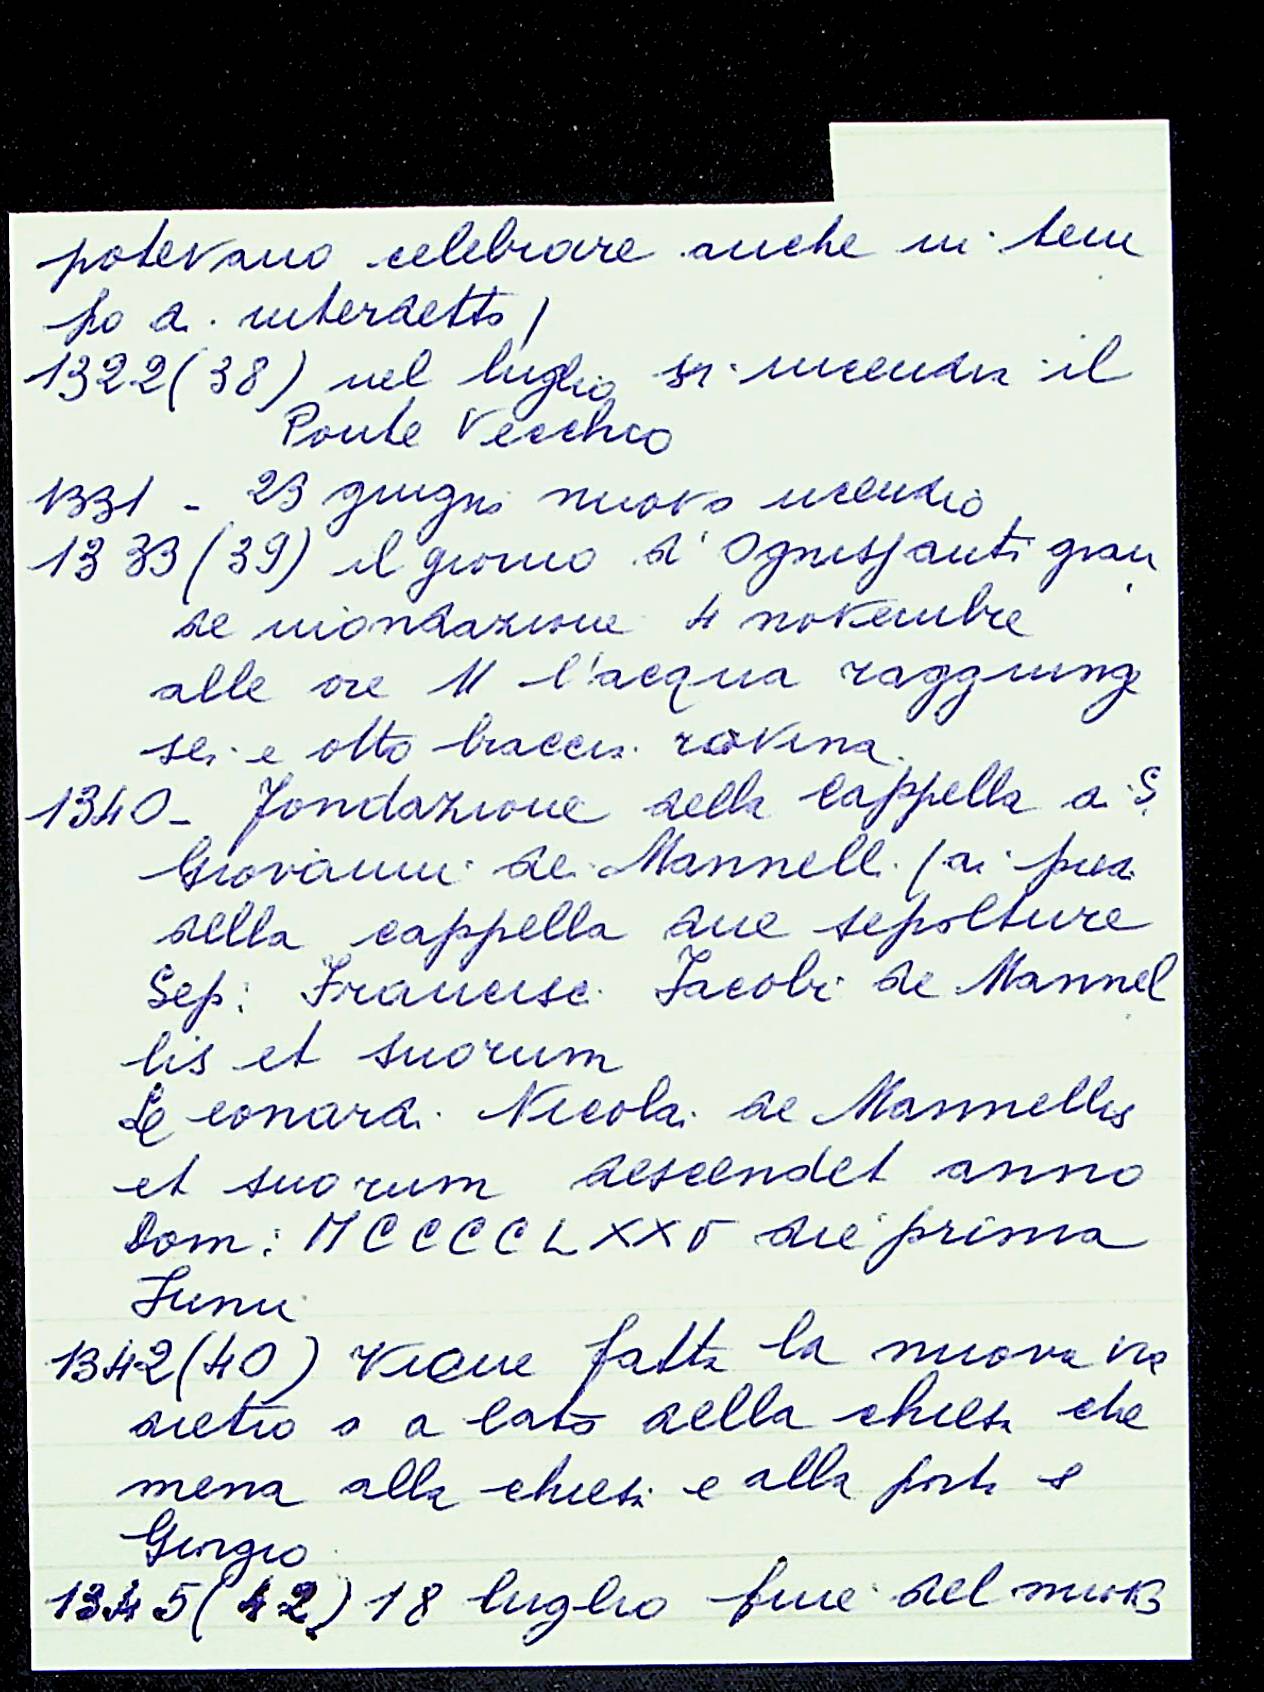 potevano celebrare anche in tem
po di interdetto)
1322(38) nel luglio si incendia il
Ponte Vecchio
1331 - 23 giugno nuovo incendio
1333(39) il giorno d'Ognissanti gran
de inondazione 4 novembre
alle ore 11 l'acqua raggiunge
sei e otto braccia. rovina
1340 - Fondazione della cappella di S.
Giovanni dei Mannelli (ai piedi
della cappella due sepolture
Sep: Francisci Jacobi de Mannel
lis et suorum
Leonardi Nicolai de Mannellis
et suorum descendet anno
Dom: MCCCCLXXV die prima
Junii
1342(40) Viene fatta la nuova via
dietro o a lato della chiesa che
mena alla chiesa e alla porta S
Giorgio
1345(42) 18 luglio fine del nuovo